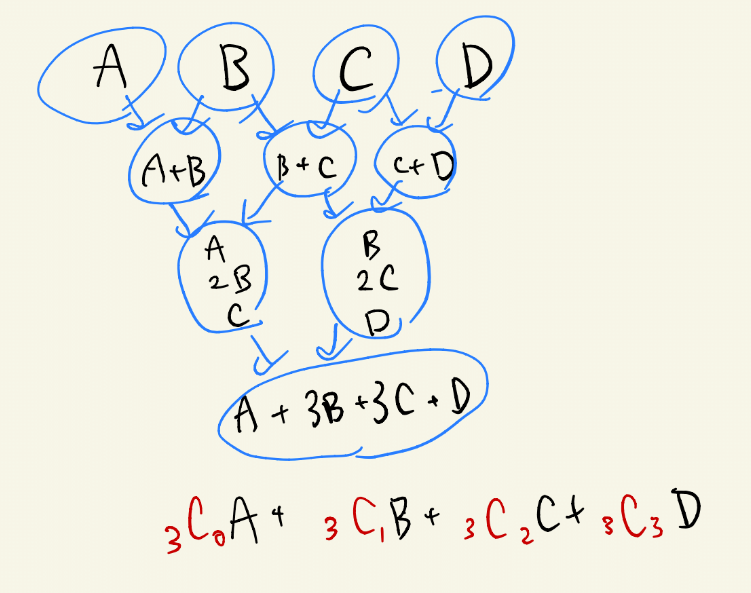 A B C D
A+B B+C C+D
A B
2B 2C
C D
A + 3B + 3C + D
₃C₀A + ₃C₁B + ₃C₂C + ₃C₃D